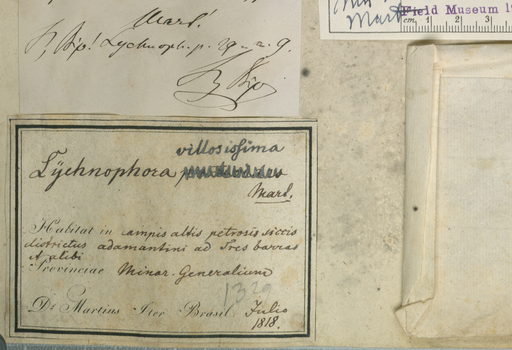 Mart!
Sz Bip! Lychnoph. p. 29. n. 9.
Sz Bip.
Mart
Field Museum
cm 1 2 3
villosissima
Lÿchnophora
Mart.
Habitat in campis altis petrosis siccis
districtus adamantini ad Tres barras
et alibi
Provinciae Minar. Generalium
Dr Martius Iter Brasil. Julio
1818.